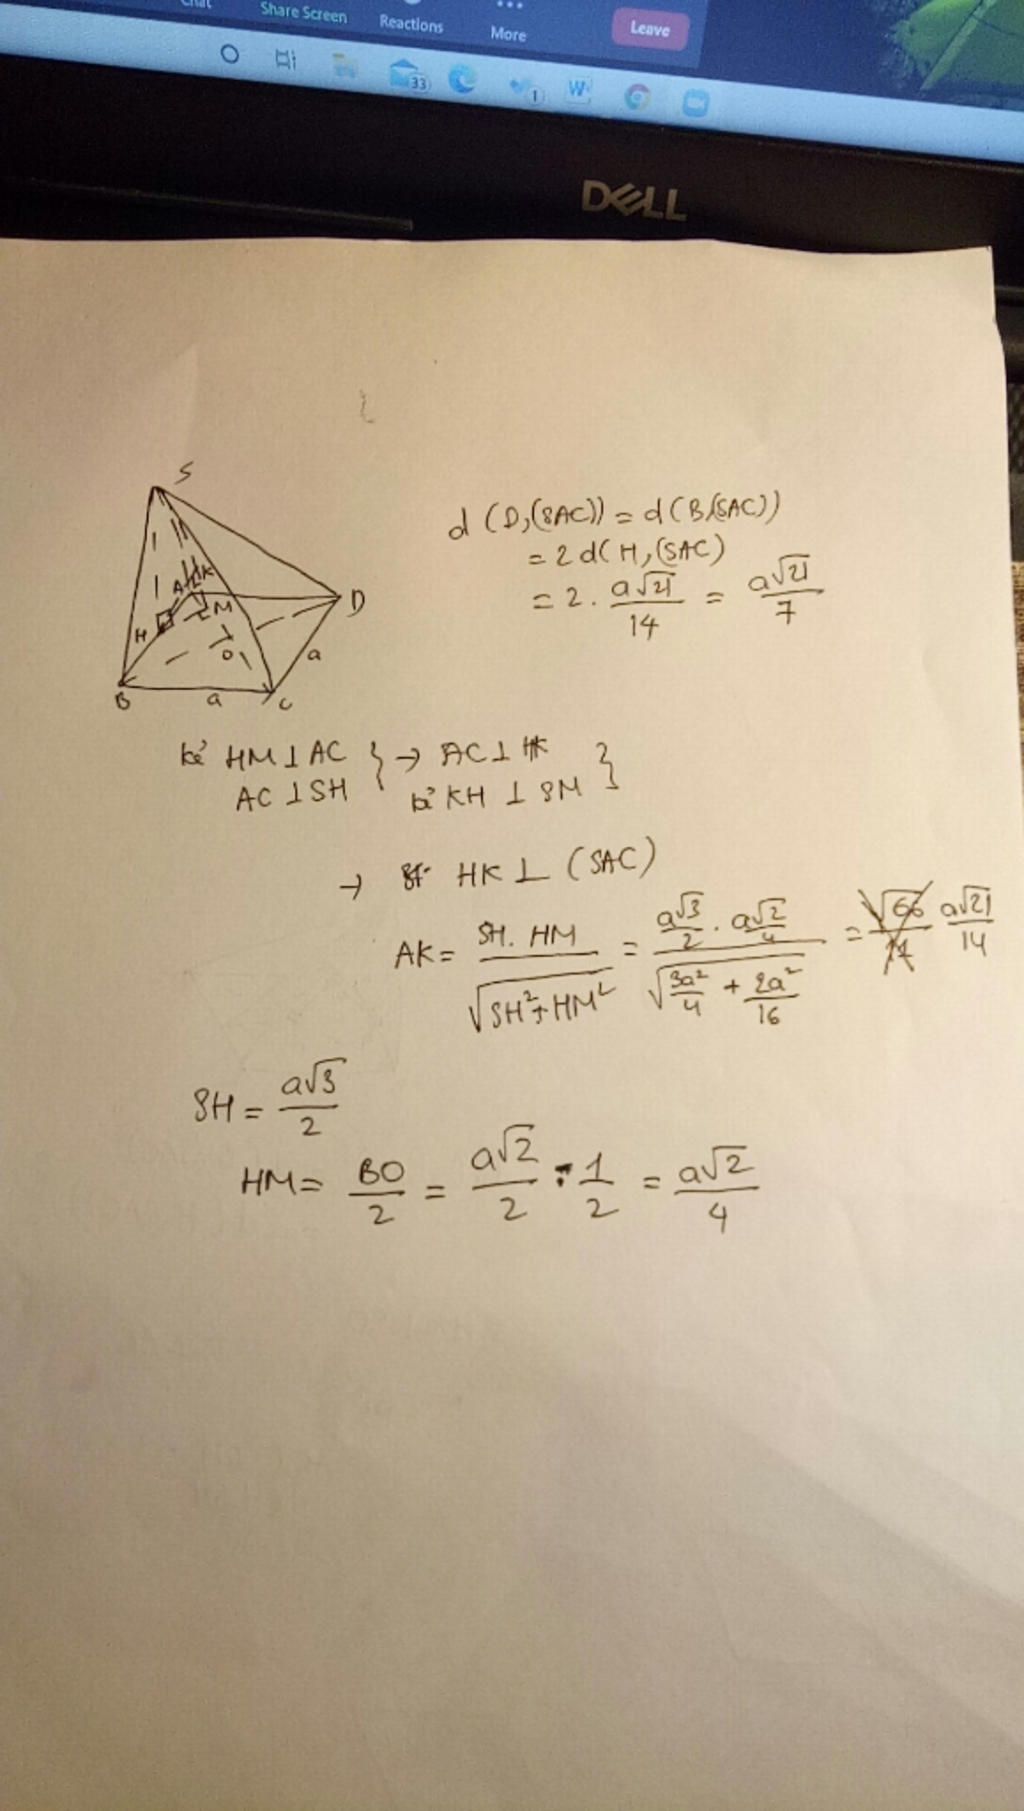 Chat
Share Screen
Reactions
More
Leave
33
1
W
DELL
S
A
K
M
H
D
O
a
B
a
C
d (D,(SAC)) = d(B,(SAC))
= 2d(H,(SAC)
= 2. a√21/14 = a√21/7
kẻ HM ⊥ AC } → AC ⊥ HK }
AC ⊥ SH kẻ KH ⊥ SM
→ HK ⊥ (SAC)
AK = SH. HM / √SH²+HM² = a√3/2 . a√2/4 / √3a²/4 + 2a²/16 = a√21/14
SH = a√3/2
HM = BO/2 = a√2/2 . 1/2 = a√2/4